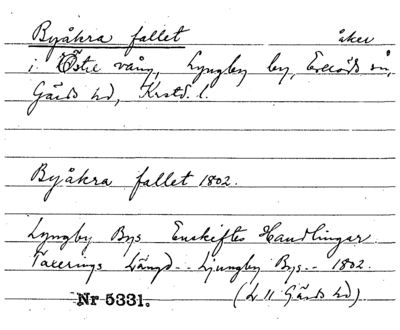 Byåkra fallet åker
i Östre vång, Lyngby by, Everöds sn,
Gärds hd, Krstd. l.
Byåkra fallet 1802.
Lyngby Bys Enskiftes Handlingar
Taxerings Längd.. Ljungby Bys.. 1802.
Nr 5331. (L 11 Gärds hd)